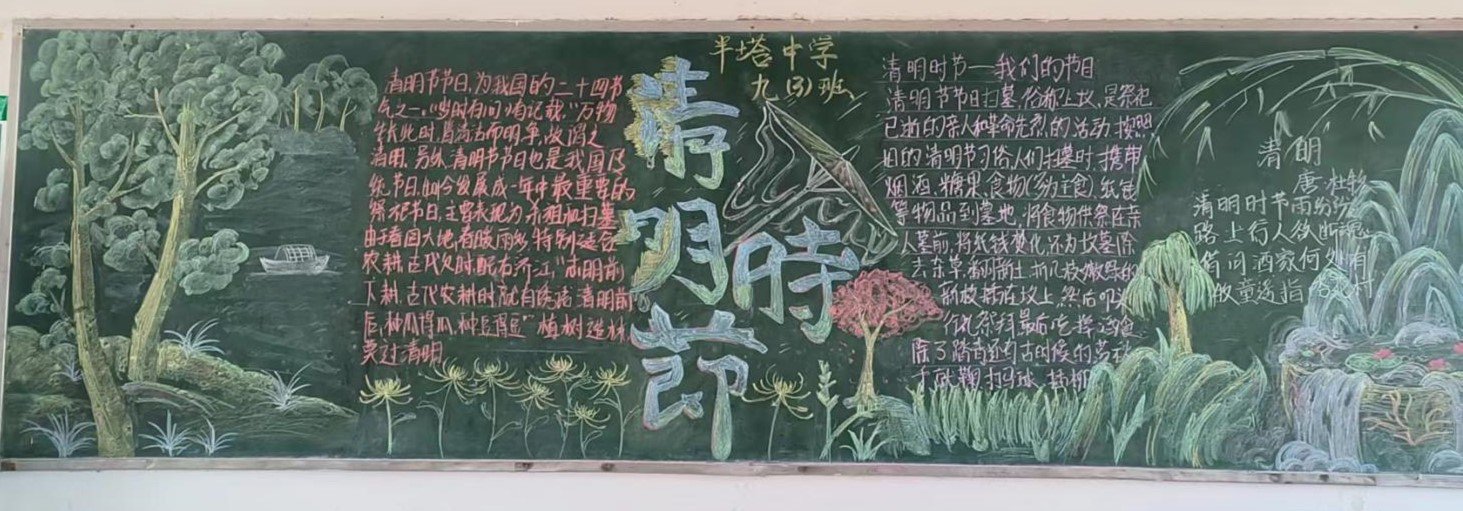 清明节节日,为我国的二十四节
气之一,"岁时百问"有记载,"万物
生长此时,皆清洁而明净,故谓之
清明。另外,清明节节日也是我国传
统节日,如今发展成一年中最重要的
祭祀节日,主要表现为示祖祖扫墓
由于春回大地,春暖雨,特别适合
农耕,古代
下耕,古代农耕时就有谚语:清明前
后,种瓜得瓜,种豆得豆"植树造林
莫过清明
清明時節
半塔中学
九(3)班
清明时节——我们的节日
清明节节日扫墓,俗称上坟,是祭祀
已逝的亲人和革命先烈的活动,按照
旧的清明节习俗,人们扫墓时,携带
烟酒、糖果、食物(主食)、纸钱
等物品到墓地,将食物供祭在亲
人墓前,将纸钱焚化,还为坟墓除
去杂草,翻新土,折几枝嫩绿的
新枝插在坟上,然后叩头
行礼祭拜,最后吃掉
除了踏青还有古时候的荡秋
千
清明
唐·杜牧
清明时节雨纷纷
路上行人欲断魂
借问酒家何处有
牧童遥指杏花村